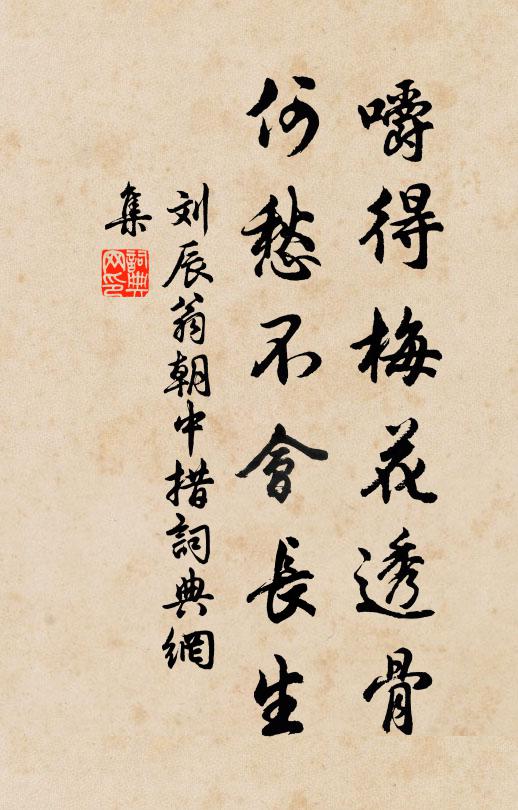 嚼得梅花透骨
何愁不會長生
刘辰翁朝中措詞典網
集
詞典网印